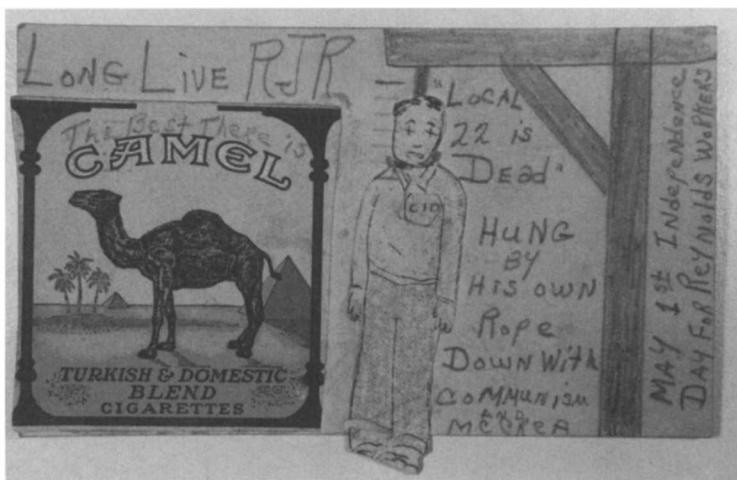 LONG LIVE RJR
The Best There is
CAMEL
TURKISH & DOMESTIC
BLEND
CIGARETTES
CIO
"LOCAL
22 is
Dead"
HUNG
BY
HIS OWN
Rope
DOWN With
COMMUNISM
AND
MCCREA
MAY 1st Independence
DAY FOR REYNOLDS WORKERS